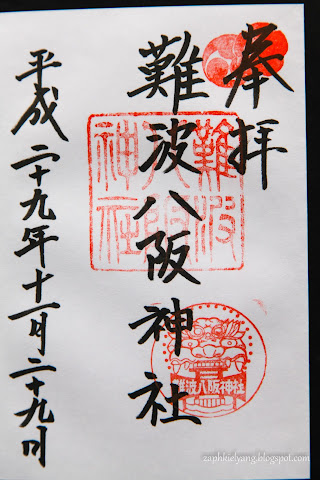 奉拝
難波八阪神社
平成二十九年十一月二十九日
難波
八阪
神社
難波八阪神社
zaphkielyang.blogspot.com